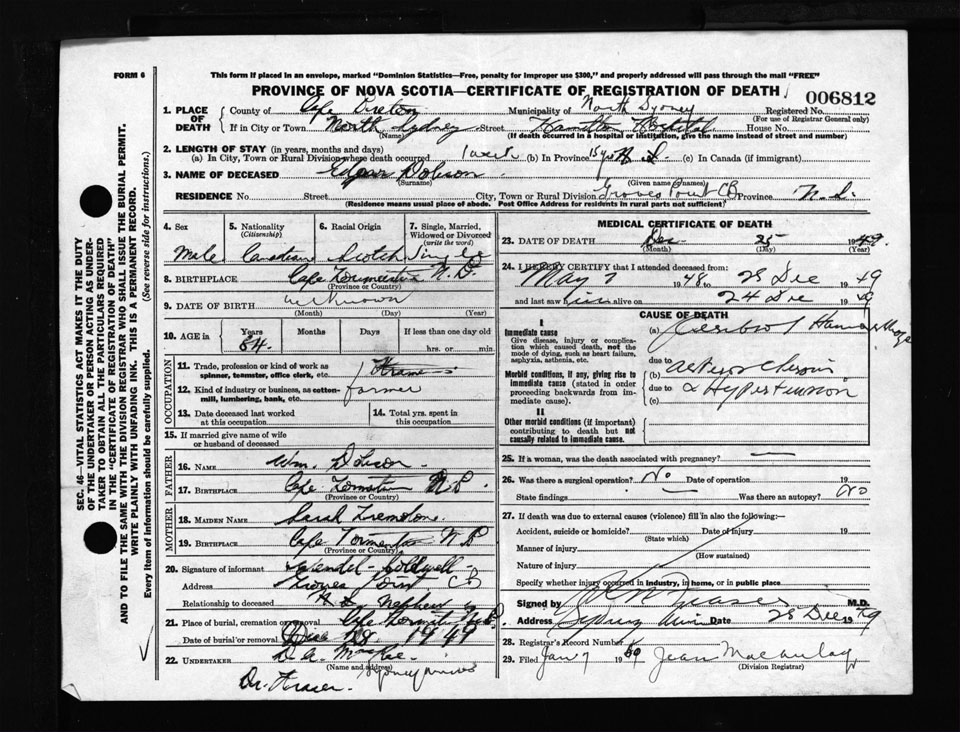 FORM 6
This form if placed in an envelope, marked "Dominion Statistics—Free, penalty for improper use $300," and properly addressed will pass through the mail "FREE"
PROVINCE OF NOVA SCOTIA—CERTIFICATE OF REGISTRATION OF DEATH
006812
1. PLACE OF DEATH
County of Cape Breton Municipality of North Sydney Registered No.
(For use of Registrar General only)
If in City or Town North Sydney Street Hamilton Hospital House No.
(Name) (If death occurred in hospital or institution, give the name instead of street and number)
2. LENGTH OF STAY (in years, months and days)
(a) In City, Town or Rural Division where death occurred 1 week (b) In Province 15 yrs N. S. (c) In Canada (if immigrant)
3. NAME OF DECEASED Edgar Dobson
(Surname) (Given name or names)
RESIDENCE No. Street City, Town or Rural Division Groves Point CB Province N. S.
(Residence means usual place of abode. Post Office Address for residents in rural parts not sufficient.)
4. Sex
Male
5. Nationality
(Citizenship)
Canadian
6. Racial Origin
Scotch
7. Single, Married, Widowed or Divorced
(write the word)
Single
8. BIRTHPLACE Cape Tormentine N. B.
(Province or Country)
9. DATE OF BIRTH unknown
(Month) (Day) (Year)
10. AGE in
Years Months Days If less than one day
84 hrs. or min.
OCCUPATION
11. Trade, profession or kind of work as spinner, teamster, office clerk, etc.
12. Kind of industry or business, as cotton-mill, lumbering, bank, etc. farmer
13. Date deceased last worked at this occupation
14. Total yrs. spent in this occupation
15. If married give name of wife or husband of deceased
FATHER
16. NAME Wm. Dobson
17. BIRTHPLACE Cape Tormentine N B.
(Province or Country)
MOTHER
18. MAIDEN NAME Sarah
19. BIRTHPLACE Cape Tormentine N. B
(Province or Country)
20. Signature of informant Wendel Coldwell
Address Groves Point C B
Relationship to deceased Nephew
21. Place of burial, cremation or removal Cape Tormentine N.B.
Date of burial or removal Dec 28 1949
22. UNDERTAKER D. A. MacRae
(Name and address)
Sydney Mines
Dr. Fraser.
MEDICAL CERTIFICATE OF DEATH
23. DATE OF DEATH Dec 25 1949.
(Month) (Day) (Year)
24. I HEREBY CERTIFY that I attended deceased from:
May 7 1948 to 25 Dec 1949
and last saw him alive on 24 Dec 1949
CAUSE OF DEATH
I
Immediate cause
Give disease, injury or complication which caused death, not the mode of dying, such as heart failure, asphyxia, asthenia, etc.
(a) Cerebral Hemorrhage
due to
Morbid conditions, if any, giving rise to immediate cause (stated in order proceeding backwards from immediate cause).
(b)
due to & Hypertension
(c)
II
Other morbid conditions (if important) contributing to death but not causally related to immediate cause.
25. If a woman, was the death associated with pregnancy? —
26. Was there a surgical operation? No Date of operation 19
State findings — Was there an autopsy? No
27. If death was due to external causes (violence) fill in also the following:—
Accident, suicide or homicide? Date of injury 19
(State which)
Manner of injury
(How sustained)
Nature of injury
Specify whether injury occurred in industry, in home, or in public place
Signed by M.D.
Address Sydney Mines Date 28 Dec 1949
28. Registrar's Record Number
29. Filed Jan 7 19 Jean Macaulay
(Division Registrar)
SEC. 46—VITAL STATISTICS ACT MAKES IT THE DUTY
OF THE UNDERTAKER OR PERSON ACTING AS UNDER-
TAKER TO OBTAIN ALL THE PARTICULARS REQUIRED
IN THE "CERTIFICATE OF REGISTRATION OF DEATH"
AND TO FILE THE SAME WITH THE DIVISION REGISTRAR WHO SHALL ISSUE THE BURIAL PERMIT.
WRITE PLAINLY WITH UNFADING INK. THIS IS A PERMANENT RECORD.
Every item of information should be carefully supplied. (See reverse side for instructions.)